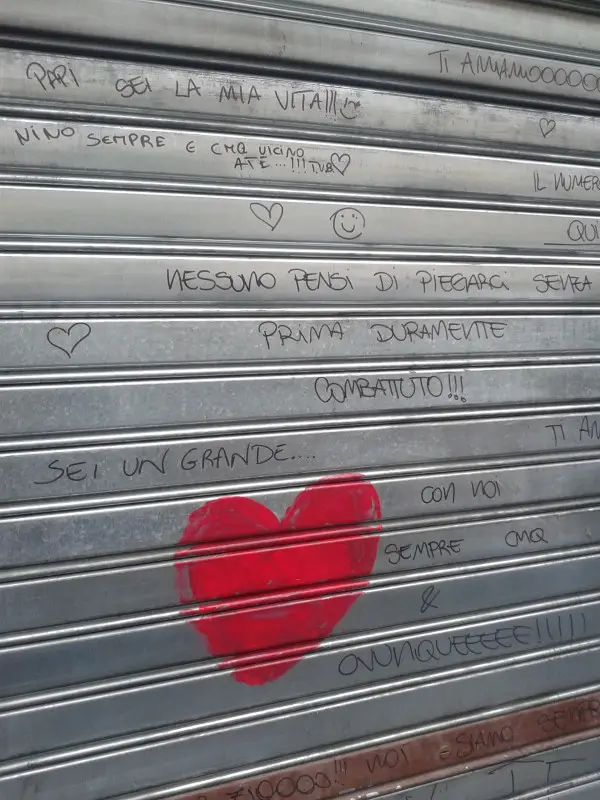 TI AMIAMOOOOOO
PAPI SEI LA MIA VITA!!!
NINO SEMPRE E CMQ VICINO
A TE...!!! TVB
IL NUMER
QUI
NESSUNO PENSI DI PIEGARCI SENZA
PRIMA DURAMENTE
COMBATTUTO!!!
TI AM
SEI UN GRANDE....
CON NOI
SEMPRE CMQ
&
OVUNQUEEEEE!!!!!
710000!!! NOI CI SIAMO SEMPR